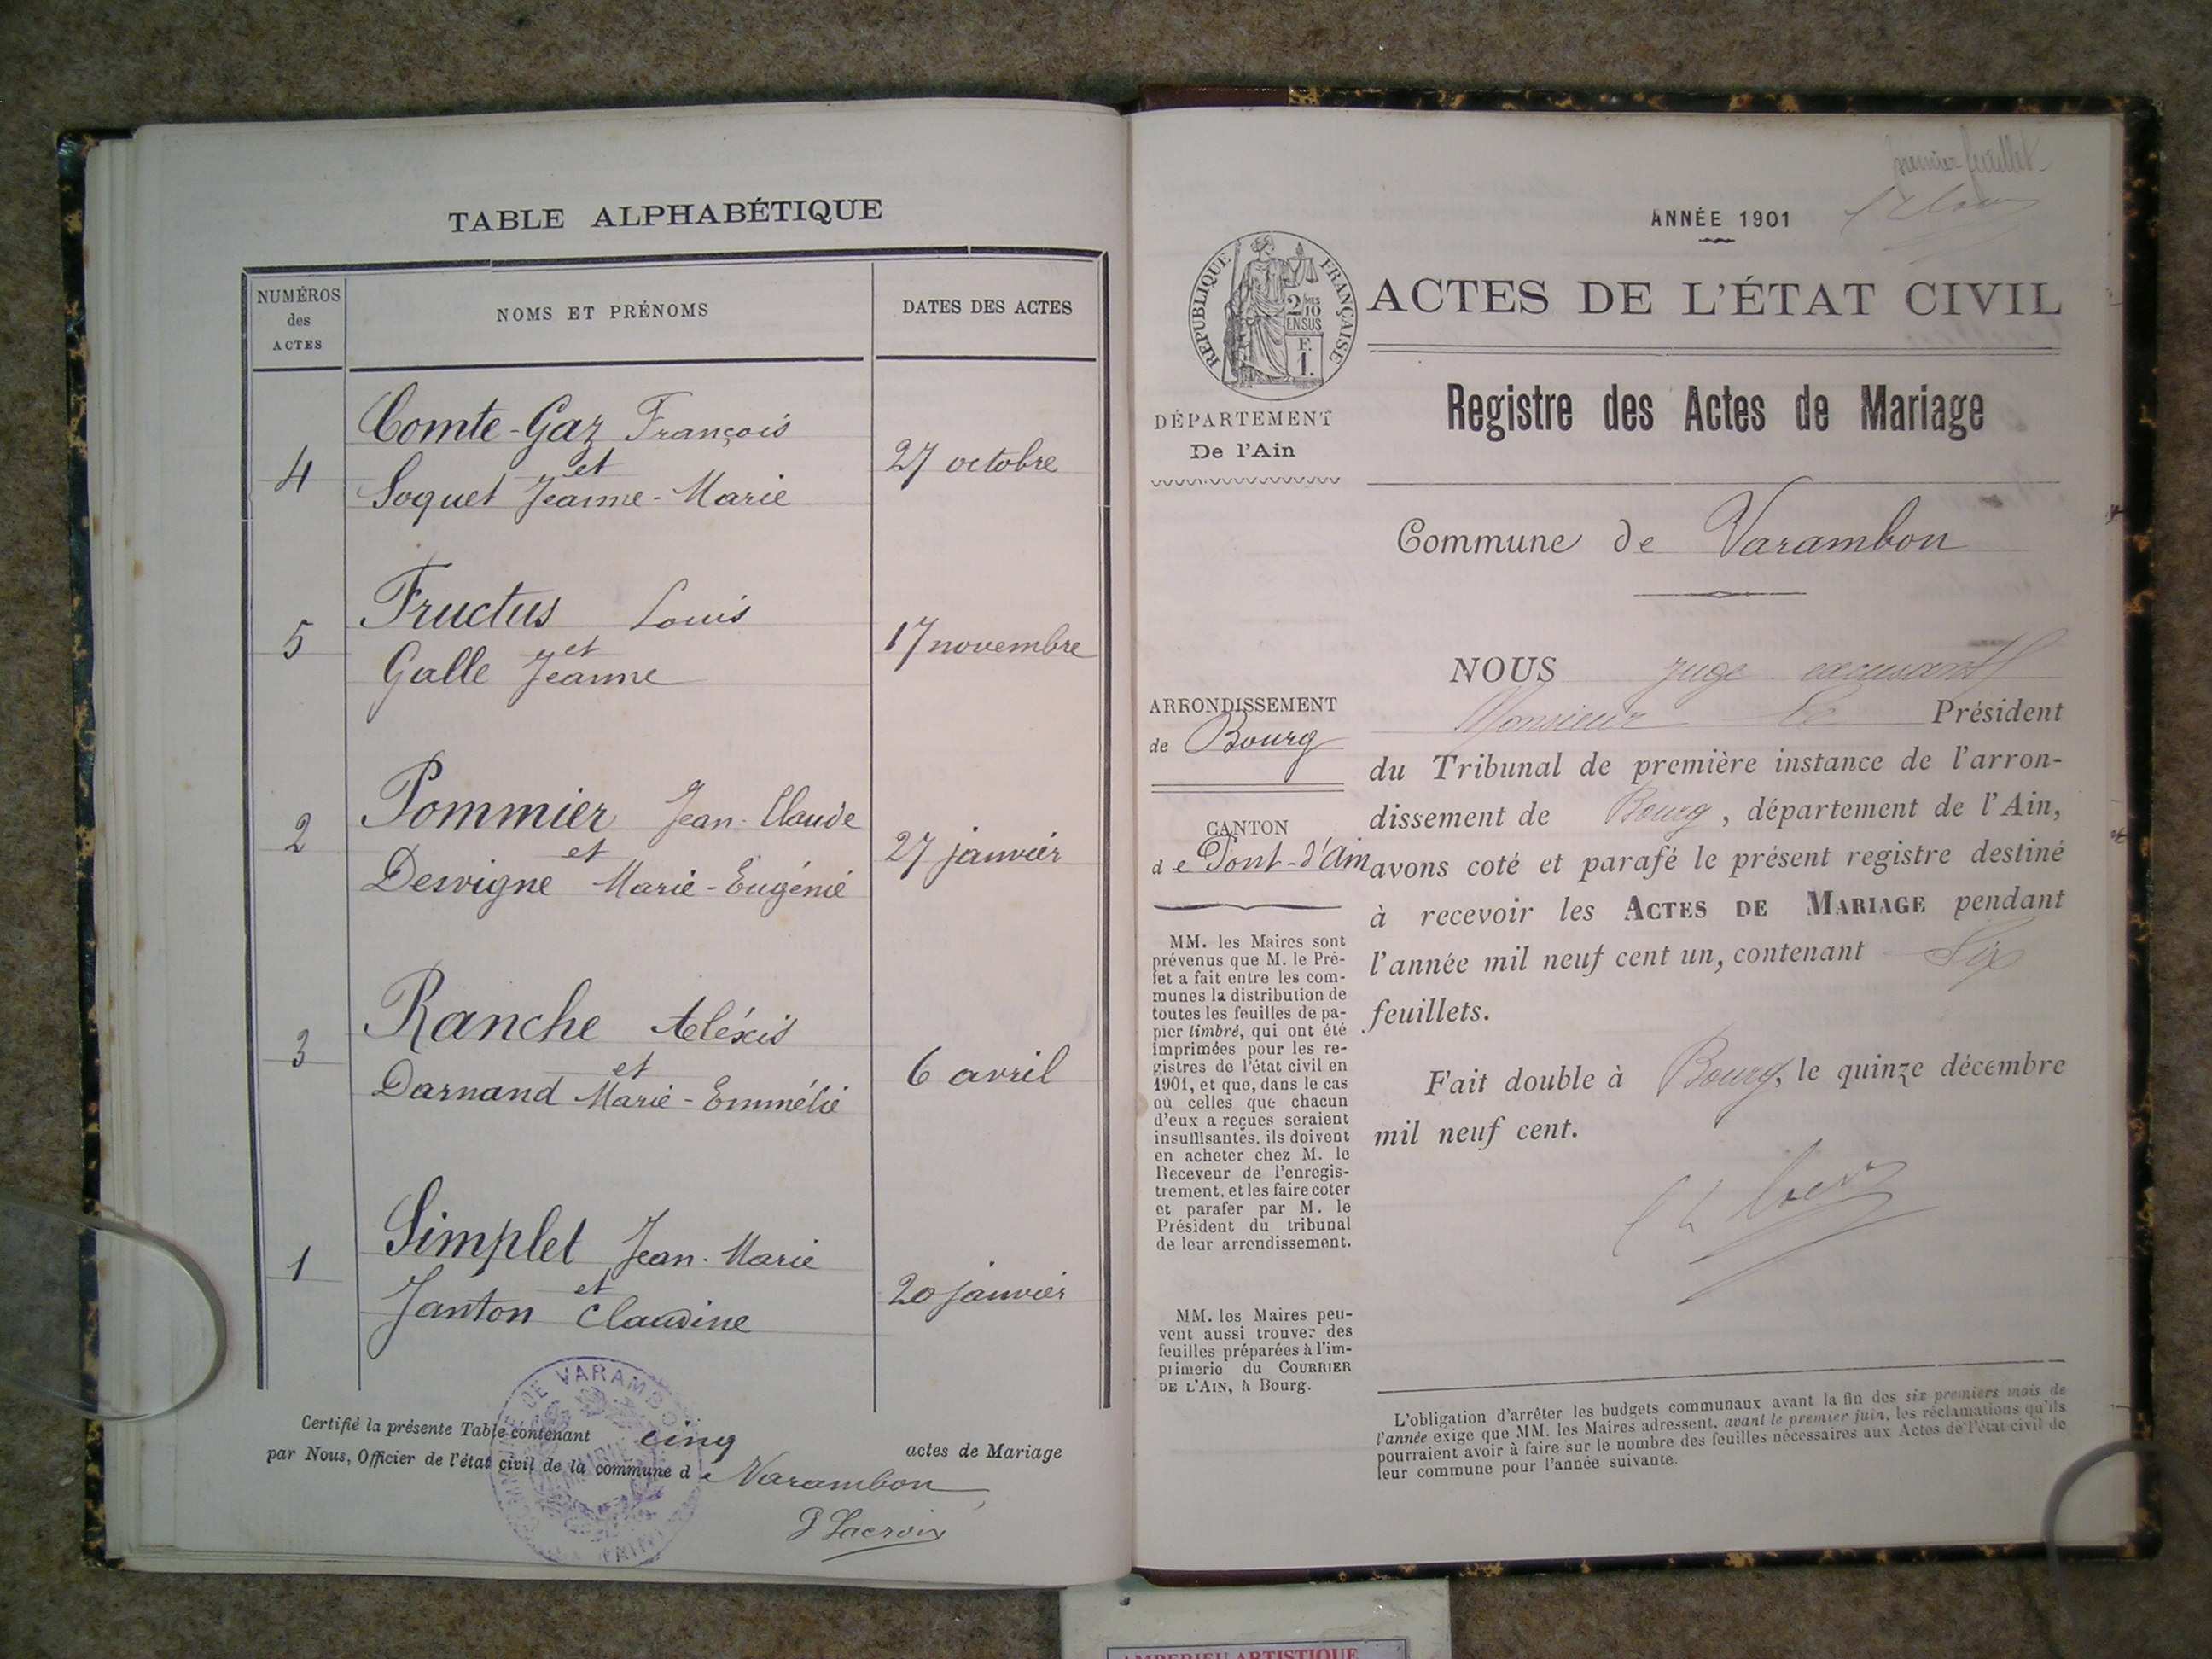 TABLE ALPHABÉTIQUE
NUMÉROS
des
ACTES
NOMS ET PRÉNOMS
DATES DES ACTES
4
Comte-Gaz François
et
Soquet Jeanne-Marie
27 octobre
5
Fructus Louis
et
Galle Jeanne
17 novembre
2
Pommier Jean-Claude
et
Desvigne Marie-Eugénie
27 janvier
3
Ranche Aléxis
et
Darnand Marie-Emmélie
6 avril
1
Simplet Jean-Marie
et
Janton Claudine
20 janvier
Certifié la présente Table contenant cinq actes de Mariage
par Nous, Officier de l'état civil de la commune de Varambon
P Lacroix
DE VARAMBON
premier feuillet
ANNÉE 1901
RÉPUBLIQUE FRANÇAISE
2/10
MES
EN SUS
F.
1.
ACTES DE L'ÉTAT CIVIL
DÉPARTEMENT
De l'Ain
Registre des Actes de Mariage
Commune de Varambon
ARRONDISSEMENT
de Bourg
CANTON
de Pont-d'Ain
MM. les Maires sont
prévenus que M. le Pré-
fet a fait entre les com-
munes la distribution de
toutes les feuilles de pa-
pier timbré, qui ont été
imprimées pour les re-
gistres de l'état civil en
1901, et que, dans le cas
où celles que chacun
d'eux a reçues seraient
insuffisantes, ils doivent
en acheter chez M. le
Receveur de l'enregis-
trement, et les faire coter
et parafer par M. le
Président du tribunal
de leur arrondissement.
MM. les Maires peu-
vent aussi trouver des
feuilles préparées à l'im-
primerie du COURRIER
DE L'AIN, à Bourg.
NOUS juge
Monsieur Le Président
du Tribunal de première instance de l'arron-
dissement de Bourg, département de l'Ain,
avons coté et parafé le présent registre destiné
à recevoir les ACTES DE MARIAGE pendant
l'année mil neuf cent un, contenant Six
feuillets.
Fait double à Bourg, le quinze décembre
mil neuf cent.
L'obligation d'arrêter les budgets communaux avant la fin des six premiers mois de
l'année exige que MM. les Maires adressent, avant le premier juin, les réclamations qu'ils
pourraient avoir à faire sur le nombre des feuilles nécessaires aux Actes de l'état civil de
leur commune pour l'année suivante.
AMBERIEU ARTISTIQUE